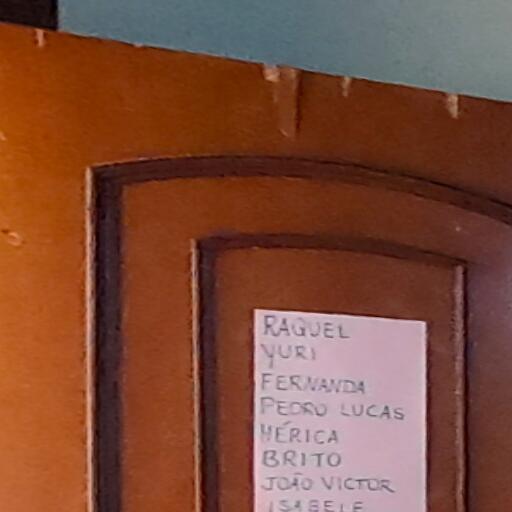 RAQUEL
YURI
FERNANDA
PEDRO LUCAS
MÉRICA
BRITO
JOÃO VICTOR
ISABELE